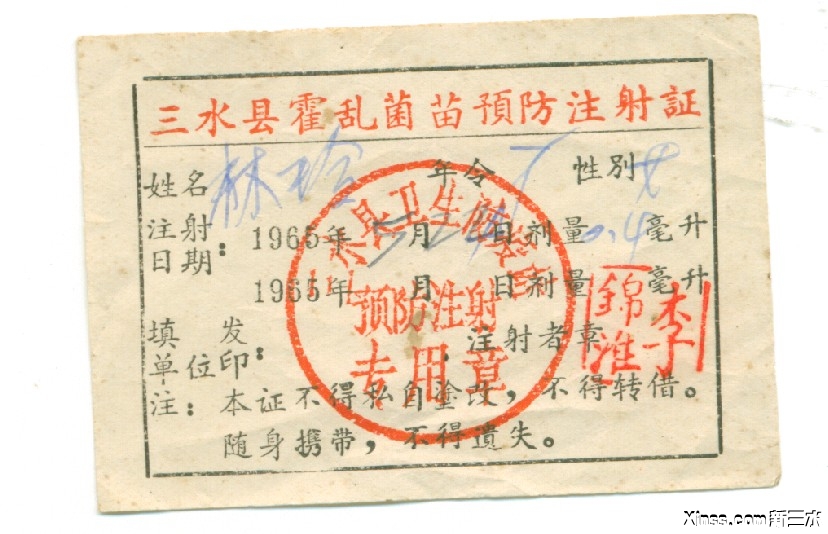 三水县霍乱菌苗預防注射証
姓名 林玲 年令 性別 女
注射日期: 1965年 月 日剂量 0.4 毫升
1965年 月 日剂量 毫升
填发单位印: 注射者章
注: 本证不得私自塗改,不得转借。
随身携带,不得遺失。
三水县卫生防疫站
预防注射
专用章
李錦淮
Xinss.com新三水